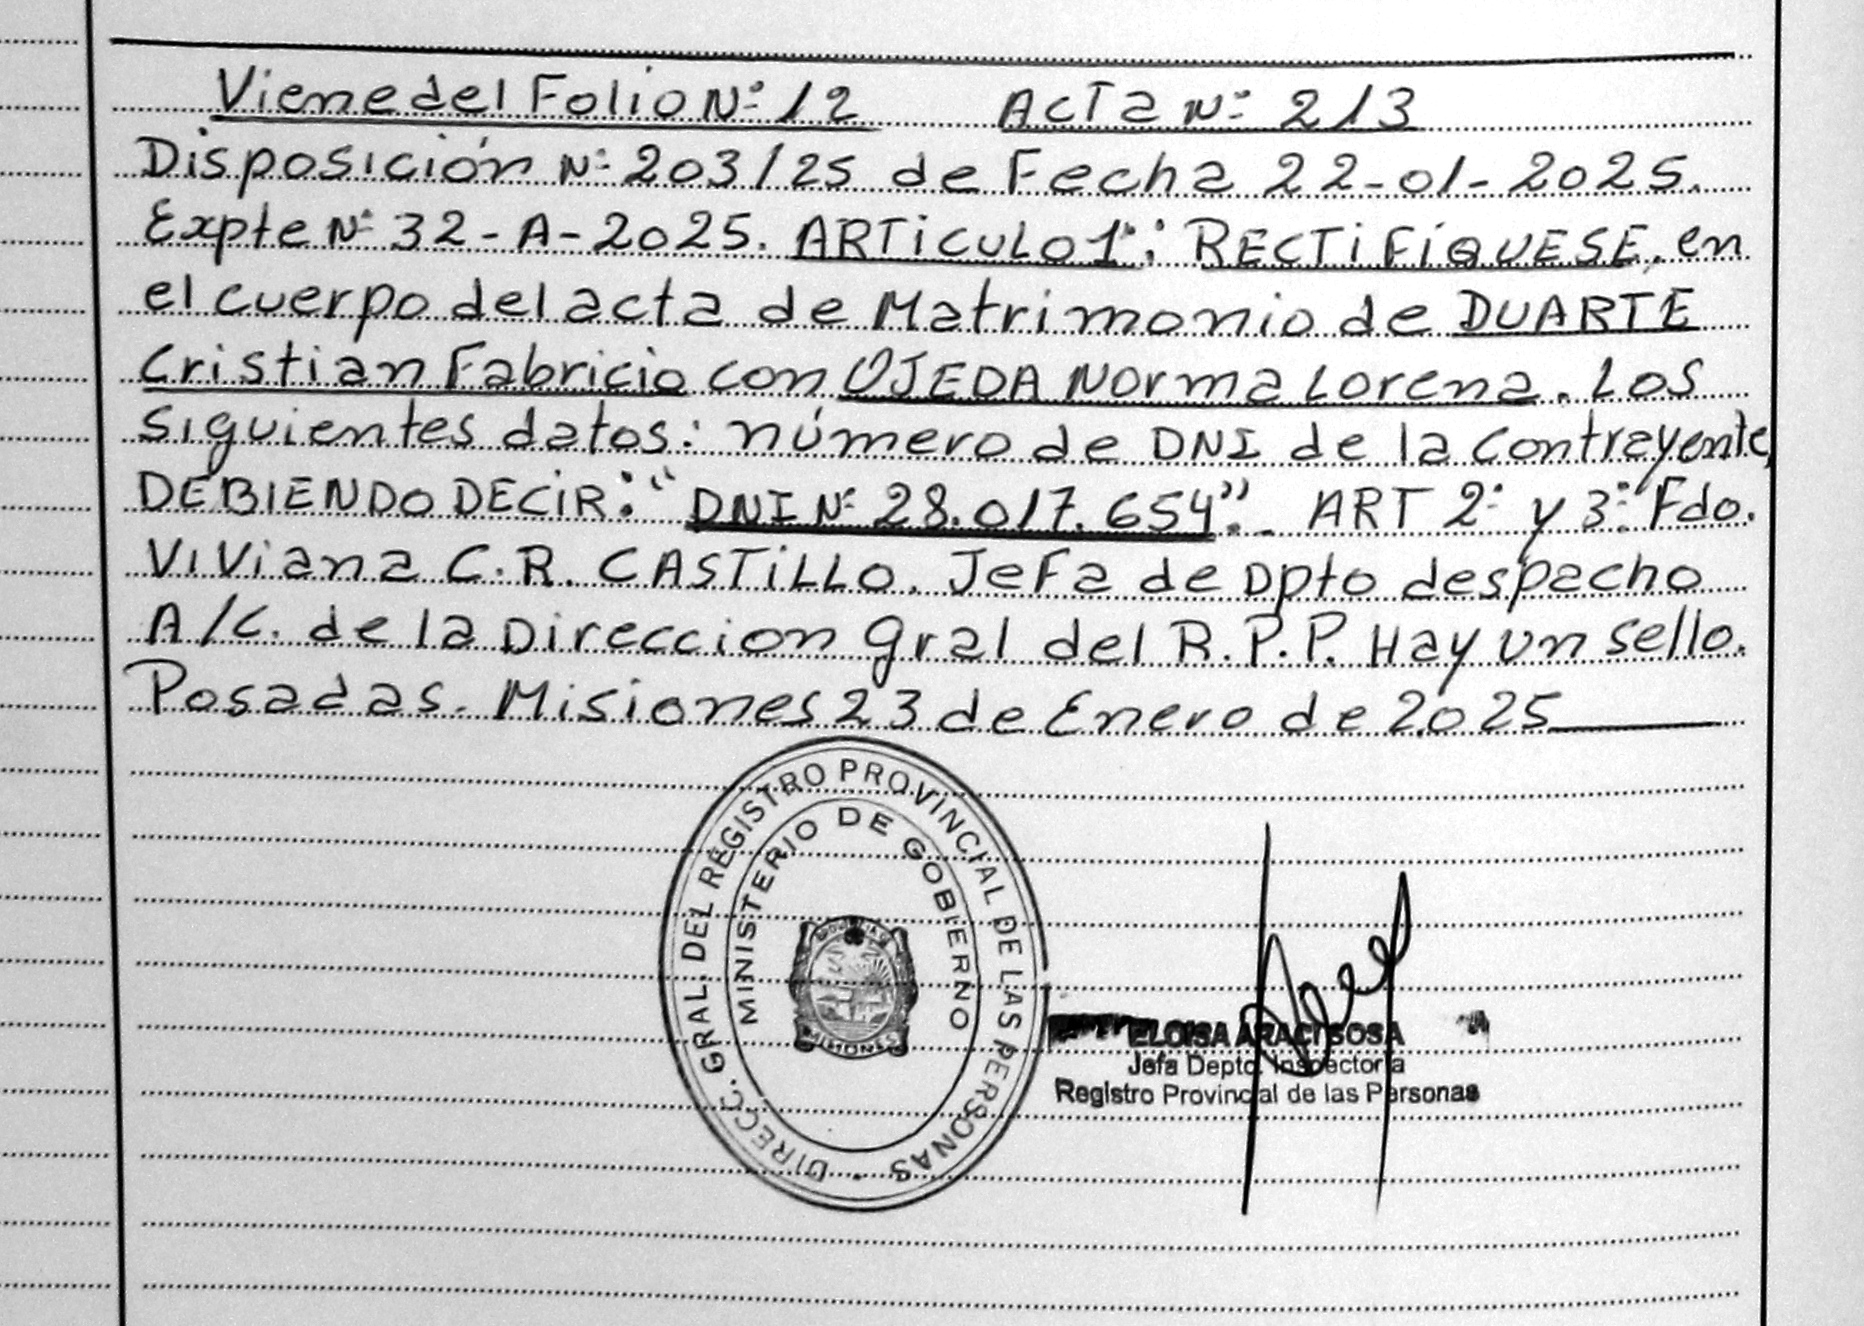 Viene del Folio Nº 12 Acta Nº 213
Disposición Nº 203/25 de Fecha 22-01-2025.
Expte Nº 32-A-2025. ARTiCULO 1º: RECTiFíQUESE, en
el cuerpo del acta de Matrimonio de DUARTE
Cristian Fabricio con OJEDA Norma Lorena. Los
siguientes datos: número de DNI de la Contrayente,
DEBIENDO DECIR: "DNI Nº 28.017.654".- ART 2º y 3º. Fdo.
Viviana C.R. CASTiLLO. Jefa de Dpto despacho
A/C. de la Direccion gral del R.P.P. Hay un sello.
Posadas. Misiones 23 de Enero de 2025
DIRECC. GRAL. DEL REGISTRO PROVINCIAL DE LAS PERSONAS
MINISTERIO DE GOBIERNO
MISIONES
ELOISA ARACI SOSA
Jefa Depto. Inspectoría
Registro Provincial de las Personas